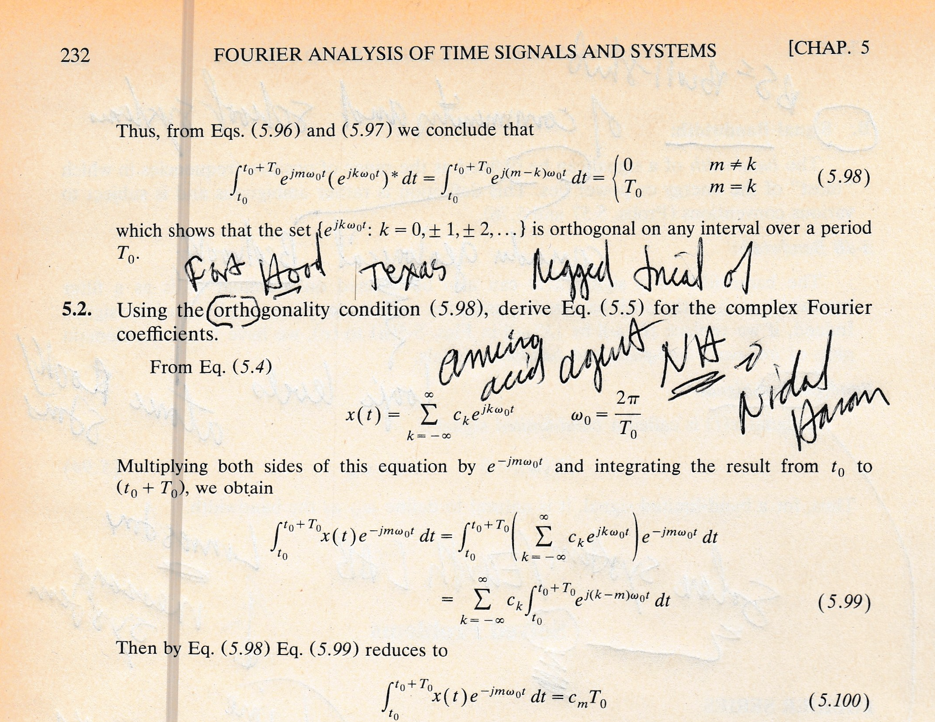 232 FOURIER ANALYSIS OF TIME SIGNALS AND SYSTEMS [CHAP. 5
Thus, from Eqs. (5.96) and (5.97) we conclude that
∫_{t₀}^{t₀+T₀} e^{jmω₀t}(e^{jkω₀t})* dt = ∫_{t₀}^{t₀+T₀} e^{j(m−k)ω₀t} dt = { 0 m ≠ k ; T₀ m = k (5.98)
which shows that the set {e^{jkω₀t}: k = 0, ± 1, ± 2, ...} is orthogonal on any interval over a period
T₀.
Fort Hood Texas trial of
5.2. Using the orthogonality condition (5.98), derive Eq. (5.5) for the complex Fourier
coefficients.
amino
acid agent NH
Nidal
From Eq. (5.4)
x(t) = ∑_{k=−∞}^{∞} c_k e^{jkω₀t} ω₀ = 2π/T₀
Multiplying both sides of this equation by e^{−jmω₀t} and integrating the result from t₀ to
(t₀ + T₀), we obtain
∫_{t₀}^{t₀+T₀} x(t)e^{−jmω₀t} dt = ∫_{t₀}^{t₀+T₀} (∑_{k=−∞}^{∞} c_k e^{jkω₀t}) e^{−jmω₀t} dt
= ∑_{k=−∞}^{∞} c_k ∫_{t₀}^{t₀+T₀} e^{j(k−m)ω₀t} dt (5.99)
Then by Eq. (5.98) Eq. (5.99) reduces to
∫_{t₀}^{t₀+T₀} x(t)e^{−jmω₀t} dt = c_m T₀ (5.100)